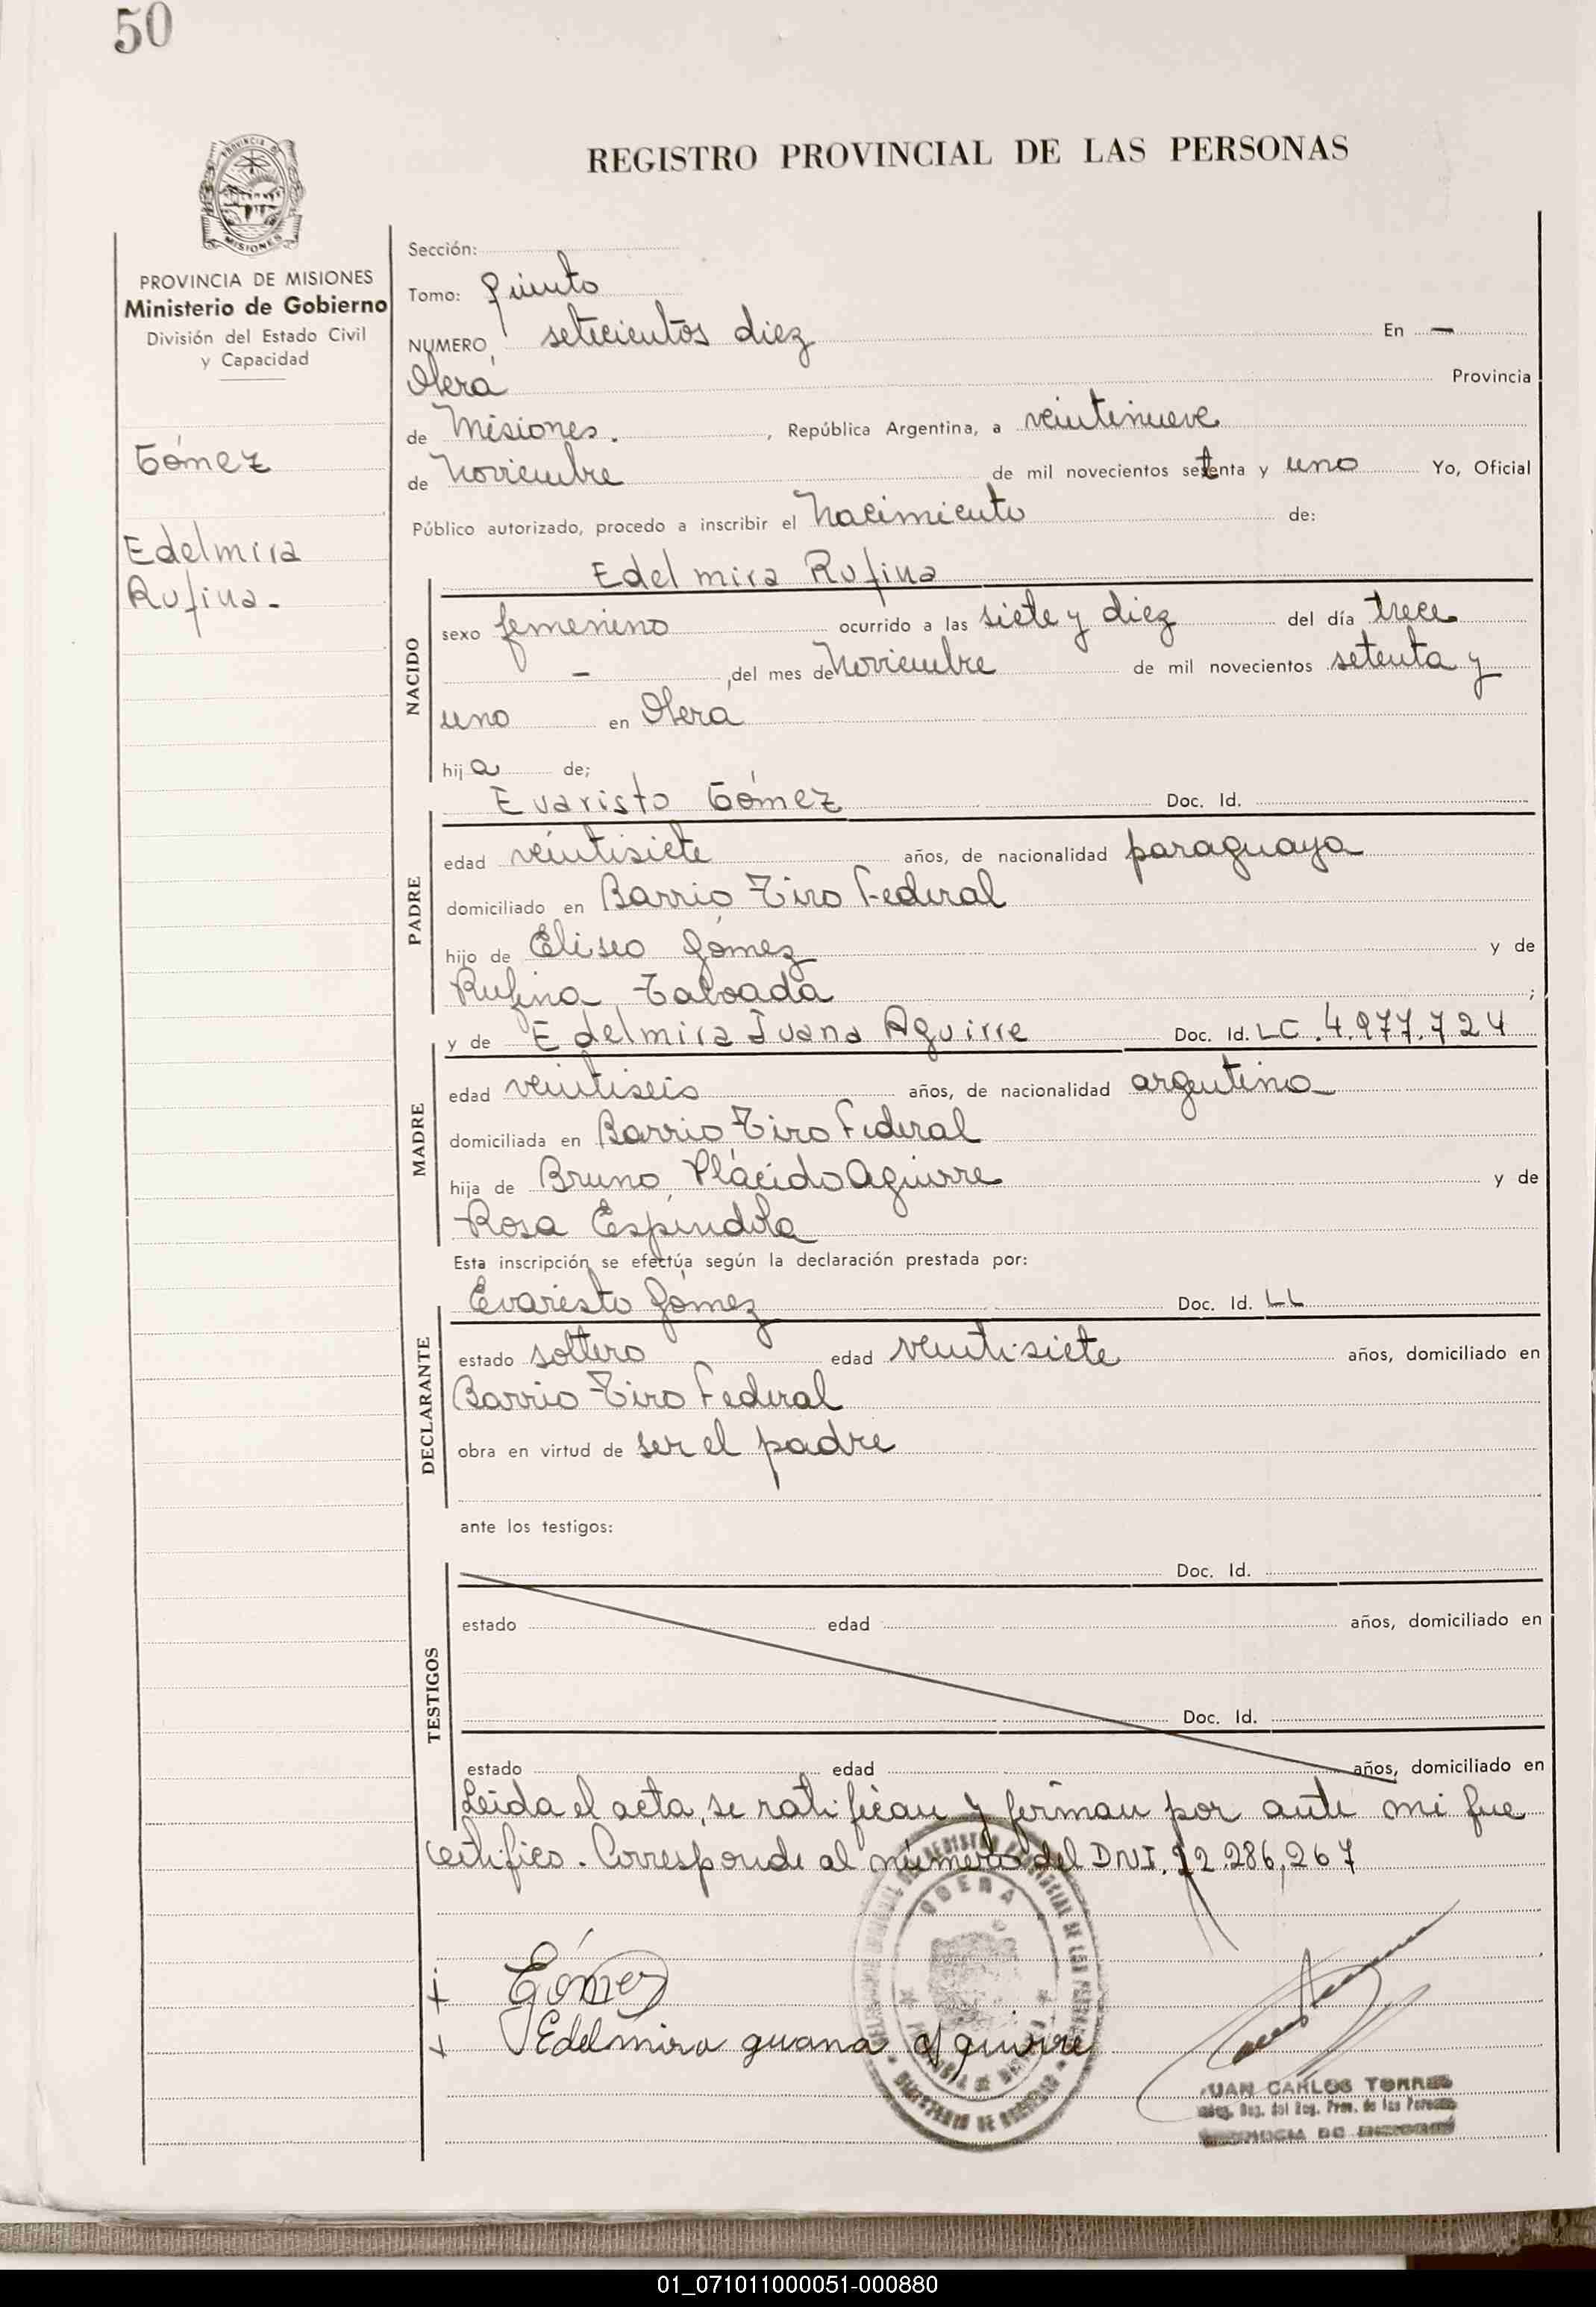 50
REGISTRO PROVINCIAL DE LAS PERSONAS
PROVINCIA DE MISIONES
MISIONES
PROVINCIA DE MISIONES
Ministerio de Gobierno
División del Estado Civil
y Capacidad
Gómez
Edelmira
Rufina.
Sección:
Tomo: Quinto
NUMERO setecientos diez En —
Oberá Provincia
de Misiones. , República Argentina, a veintinueve
de Noviembre de mil novecientos setenta y uno Yo, Oficial
Público autorizado, procedo a inscribir el Nacimiento de:
Edelmira Rufina
NACIDO
sexo femenino ocurrido a las siete y diez del día trece
— ,del mes de Noviembre de mil novecientos setenta y
uno en Oberá
hij a de;
Evaristo Gómez Doc. Id.
PADRE
edad veintisiete años, de nacionalidad paraguaya
domiciliado en Barrio Tiro Federal
hijo de Eliseo Gómez y de
Rufina Taboada ;
y de Edelmira Juana Aguirre Doc. Id. LC. 4.977.724
MADRE
edad veintiseis años, de nacionalidad argentina
domiciliada en Barrio Tiro Federal
hija de Bruno Plácido Aguirre y de
Rosa Espíndola
Esta inscripción se efectúa según la declaración prestada por:
Evaristo Gómez Doc. Id.
DECLARANTE
estado soltero edad veintisiete años, domiciliado en
Barrio Tiro Federal
obra en virtud de ser el padre
ante los testigos:
Doc. Id.
TESTIGOS
estado edad años, domiciliado en
Doc. Id.
estado edad años, domiciliado en
Leida el acta, se ratifican y firman por ante mi que
certifico. Corresponde al número del DNI. 22.286,267
OBERA
Gómez
Edelmira guana Aguirre
JUAN CARLOS TORRES
Reg. Prov. de las Personas
01_071011000051-000880